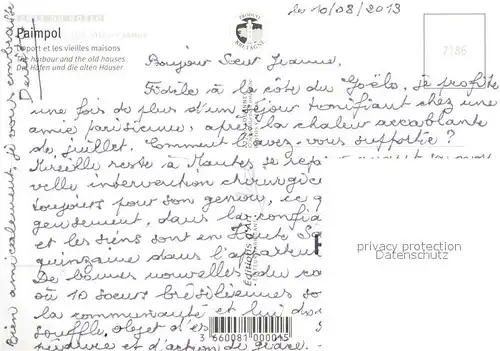 le 10/08/2013
Paimpol
Le port et les vieilles maisons
The harbour and the old houses
Der Hafen und die alten Häuser
PRODUIT EN BRETAGNE
7186
Bonjour Sœur Jeanne,
Fidèle à la côte du Goëlo, je profite
une fois de plus d'un séjour tonifiant chez une
amie parisienne, après la chaleur accablante
de juillet. Comment l'avez-vous supportée ?
Mireille reste à Nantes se rep
velle intervention chirurgic
toujours pour son genou, ce q
geusement, dans la confia
et les siens sont en Haute Sa
quinzaine dans l'appartem
De bonnes nouvelles du
où 10 sœurs brésiliennes so
la communauté et lui do
souffle, objet d'es
et d'action de grâce.
Bien amicalement, je vous embrasse
privacy protection
Datenschutz
3 660081 000015